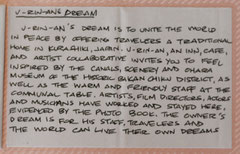 U-RIN-AN'S DREAM
U-RIN-AN'S DREAM IS TO UNITE THE WORLD
IN PEACE BY OFFERING TRAVELERS A TRADITIONAL
HOME IN KURASHIKI, JAPAN. U-RIN-AN, AN INN, CAFE,
AND ARTIST COLLABORATIVE INVITES YOU TO FEEL
INSPIRED BY THE CANALS, SCENERY AND OHARA
MUSEUM OF THE HISTORIC BIKAN CHIKU DISTRICT, AS
WELL AS THE WARM AND FRIENDLY STAFF AT THE
COMMUNAL TABLE. ARTISTS, FILM DIRECTORS, ACTORS
AND MUSICIANS HAVE WORKED AND STAYED HERE,
EVIDENCED BY THE PHOTO BOOK. THE OWNER'S
DREAM IS FOR HIS STAFF, TRAVELERS AND
THE WORLD CAN LIVE THEIR OWN DREAMS